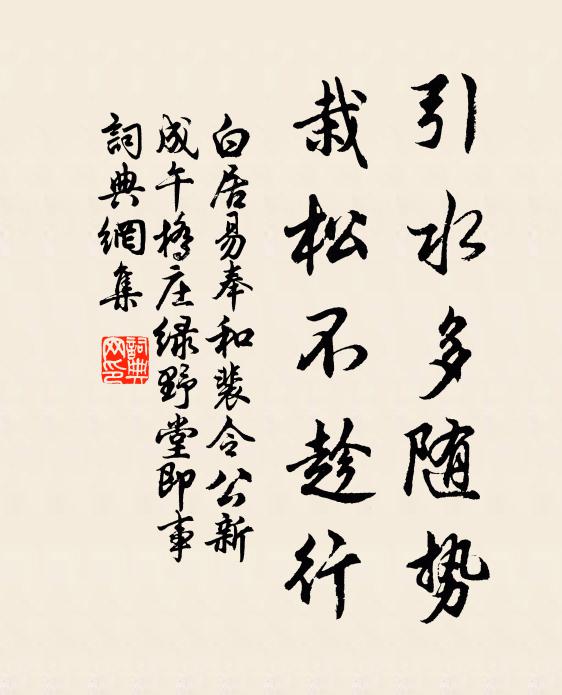 引水多随势
栽松不趁行
白居易奉和裴令公新
成午橋庄緑野堂即事
詞典網集
詞典网印